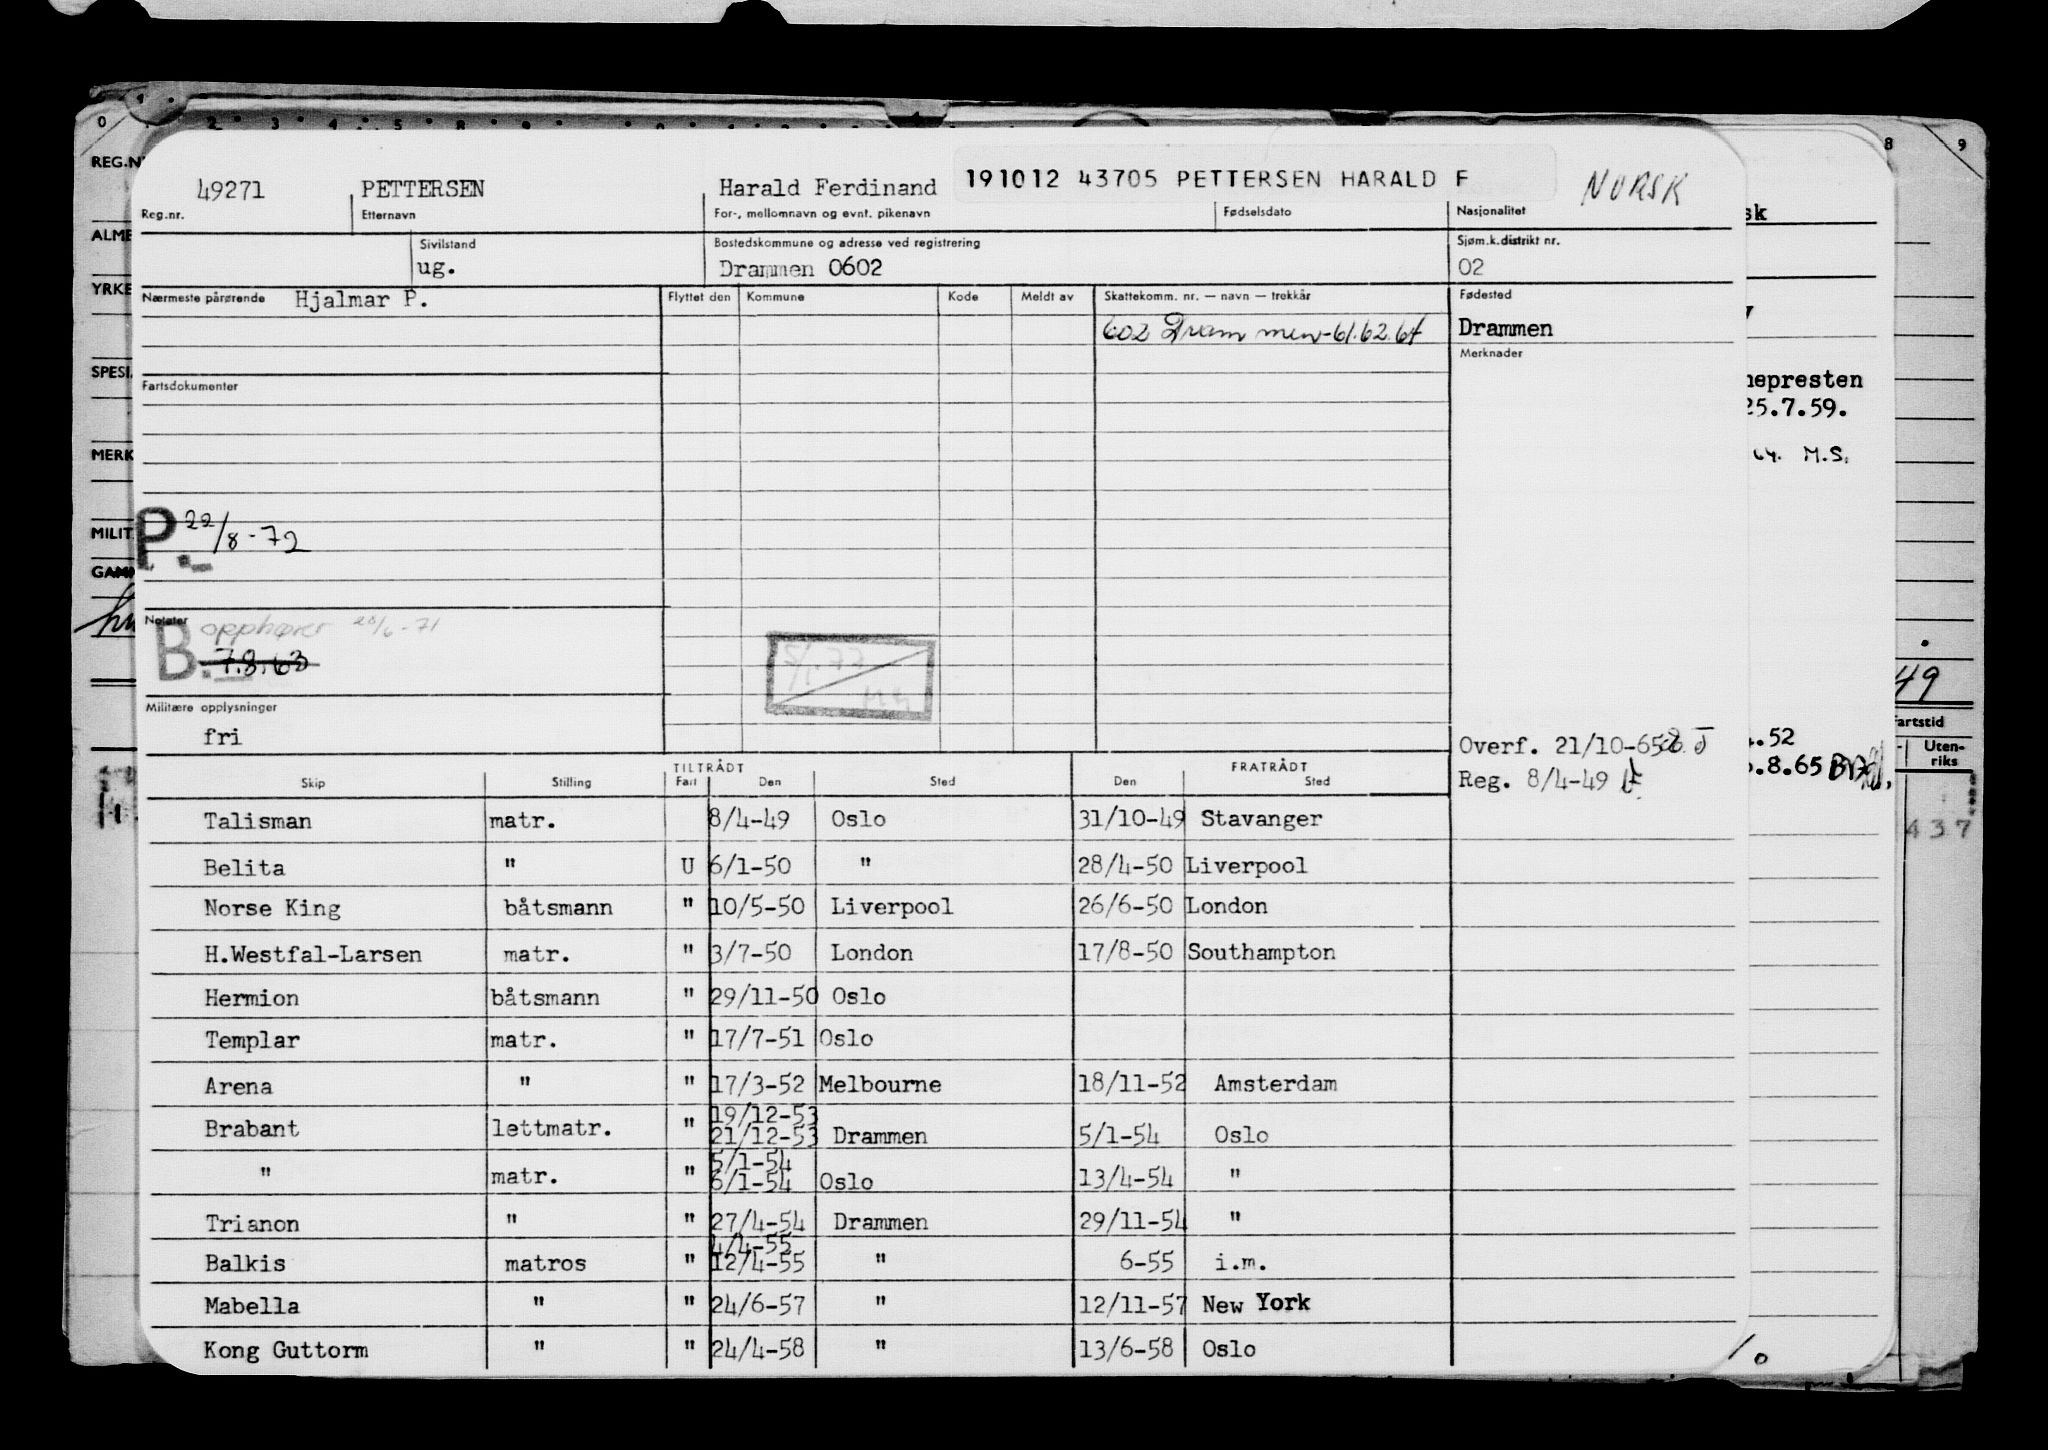 0 1 2 3 4 5 8 9 8 9
REG.N
49271 PETTERSEN Harald Ferdinand 191012 43705 PETTERSEN HARALD F NORSK
Reg.nr. Etternavn For-, mellomnavn og evnt. pikenavn Fødselsdato Nasjonalitet sk
ALME
Sivilstand Bostedskommune og adresse ved registrering Sjøm.k.distrikt nr.
ug. Drammen 0602 02
YRKE
Nærmeste pårørende Hjalmar P. Flyttet den Kommune Kode Meldt av Skattekomm. nr. — navn — trekkår Fødested
602 Drammen-61.62.64 Drammen
Merknader
SPESI
Fartsdokumenter nepresten
25.7.59.
MERK 64. M.S.
MILIT
P. 22/8-72
GAMM
Notater
B. opphører 20/6-71
7.8.63
5/1.72
49
Militære opplysninger
fri
Fartstid
Uten-
riks
Overf. 21/10-65
.52
Reg. 8/4-49
.8.65
TILTRÅDT FRATRÅDT
Skip Stilling Fart Den Sted Den Sted
Talisman matr. 8/4-49 Oslo 31/10-49 Stavanger
437
Belita " U 6/1-50 " 28/4-50 Liverpool
Norse King båtsmann " 10/5-50 Liverpool 26/6-50 London
H.Westfal-Larsen matr. " 3/7-50 London 17/8-50 Southampton
Hermion båtsmann " 29/11-50 Oslo
Templar matr. " 17/7-51 Oslo
Arena " " 17/3-52 Melbourne 18/11-52 Amsterdam
19/12-53
Brabant lettmatr. " 21/12-53 Drammen 5/1-54 Oslo
5/1-54
" matr. " 6/1-54 Oslo 13/4-54 "
Trianon " " 27/4-54 Drammen 29/11-54 "
4/4-55
Balkis matros " 12/4-55 " 6-55 i.m.
Mabella " " 24/6-57 " 12/11-57 New York
Kong Guttorm " " 24/4-58 " 13/6-58 Oslo